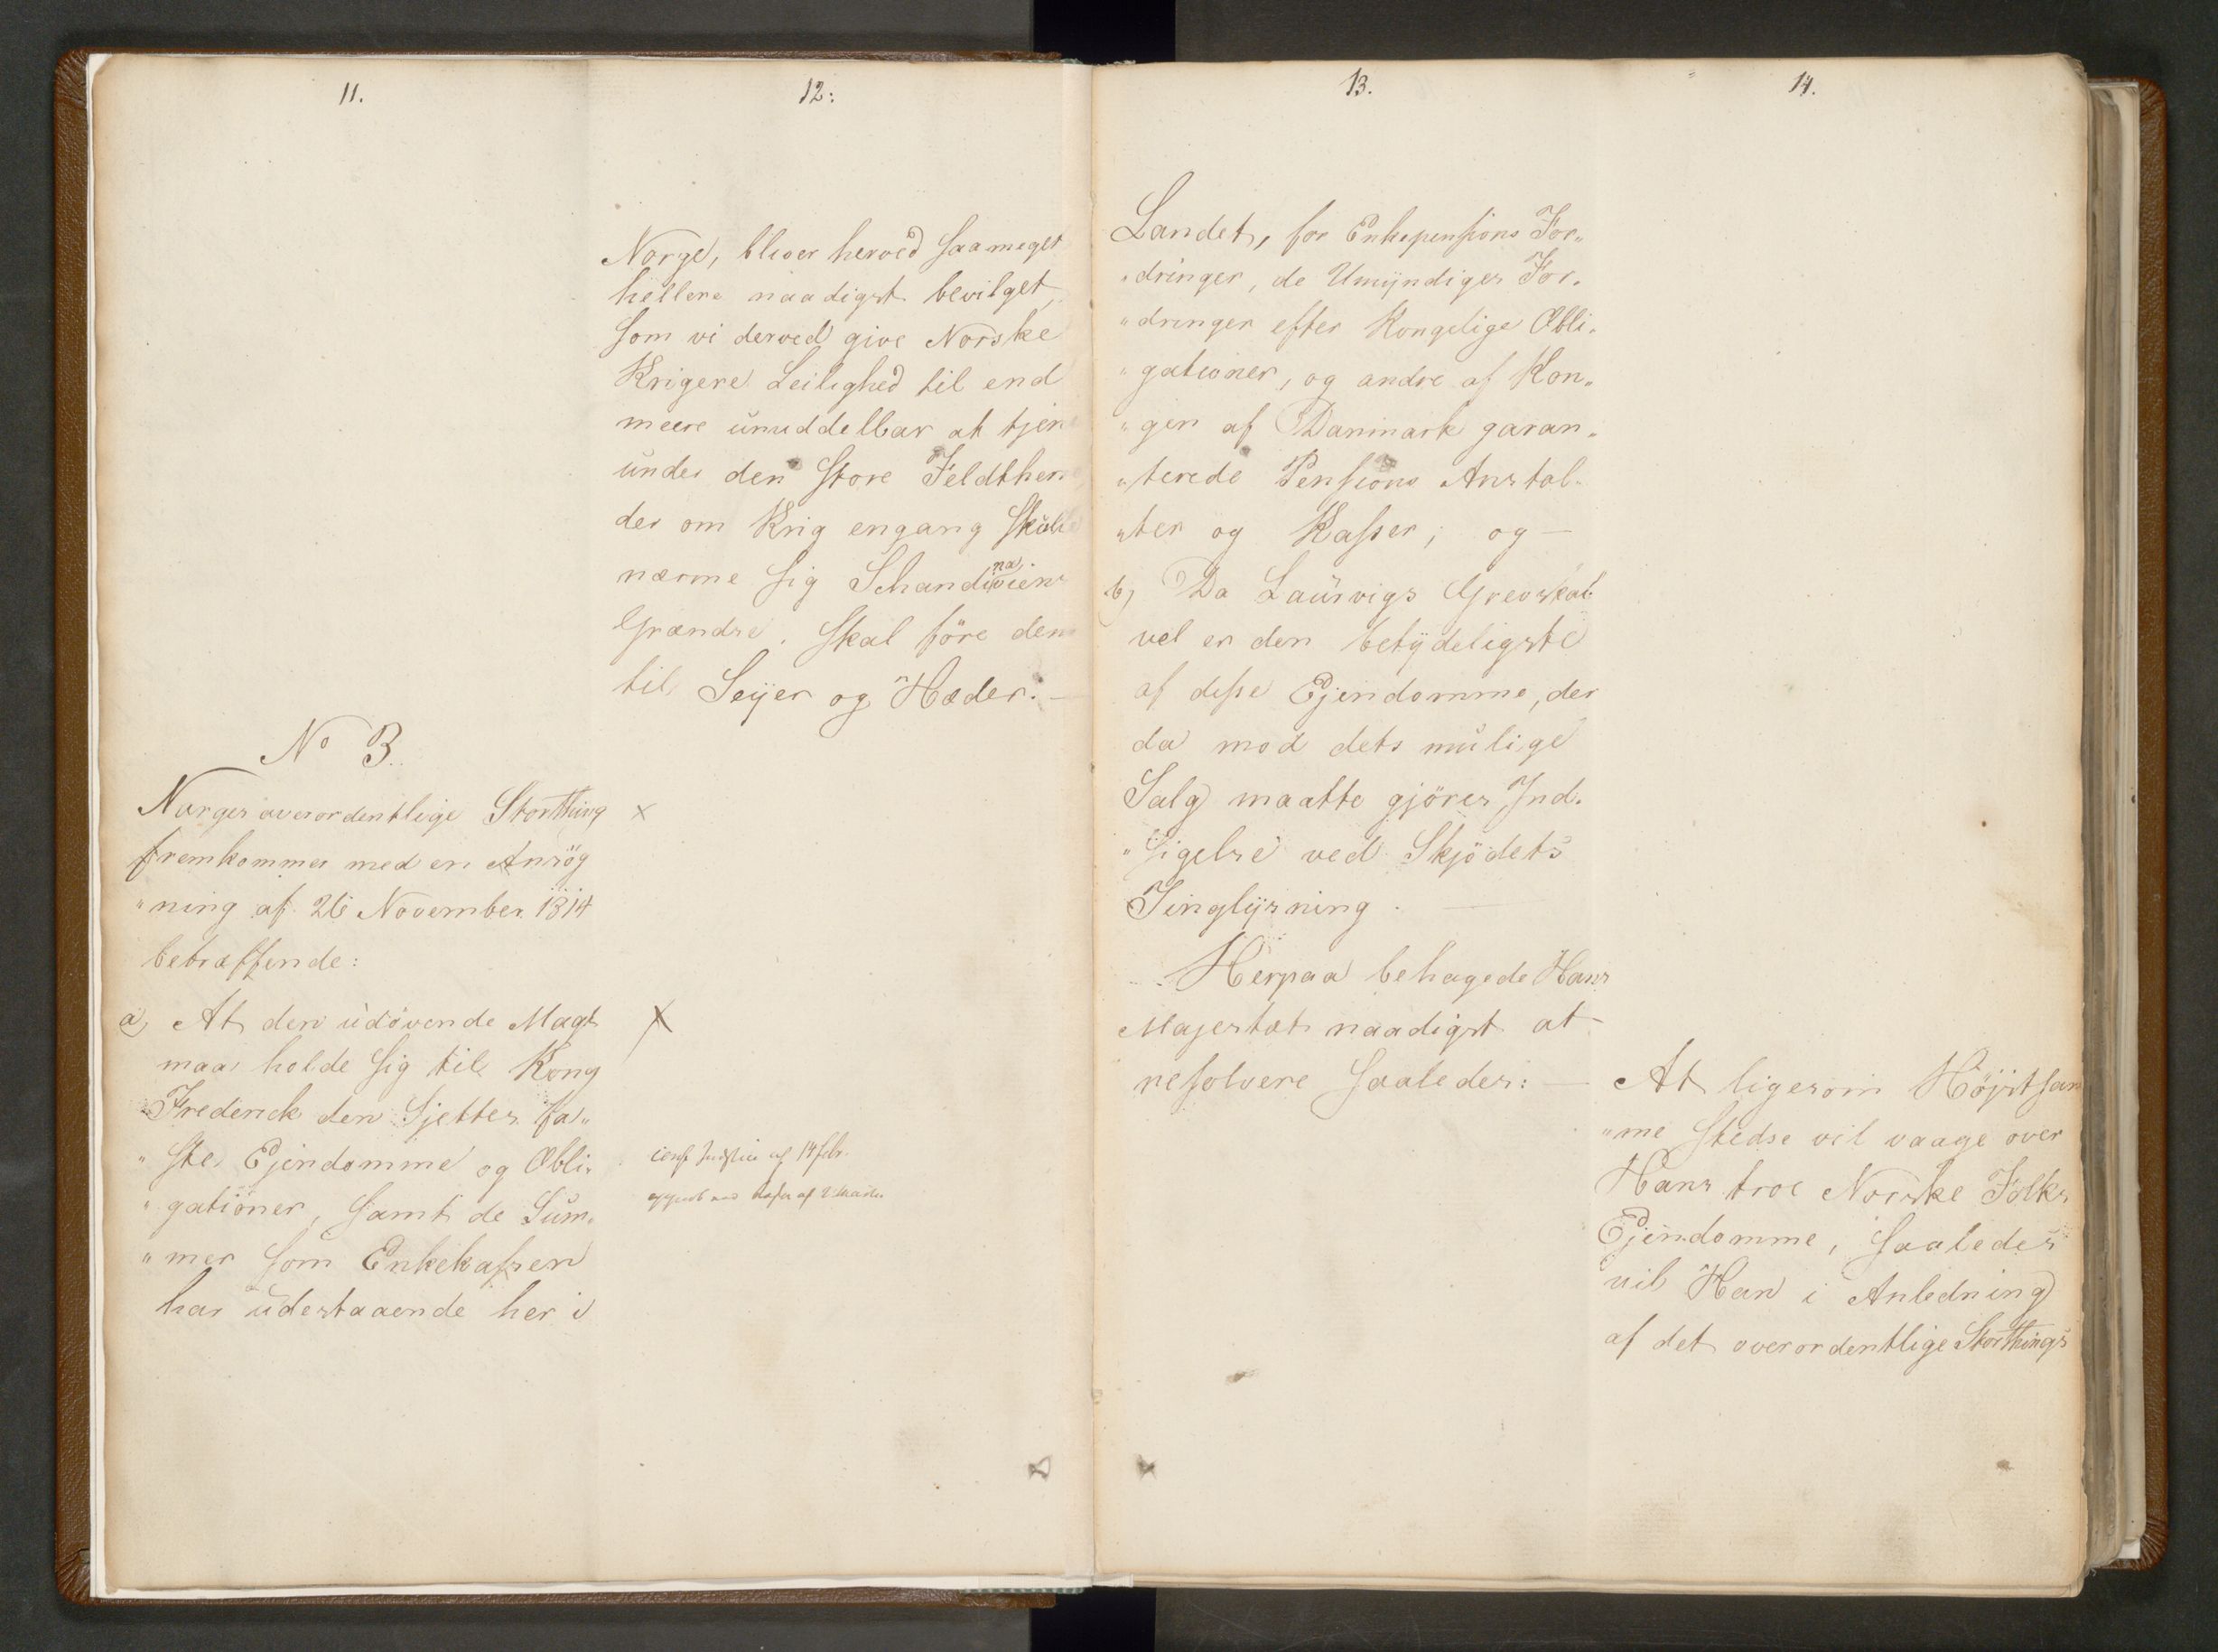 11.
N° 3.
Norges overordentlige Storthing
fremkommer med en Ansøg
"ning af 26 November 1814
betræffende:
a, At den udøvende Magt
maa holde sig til Kong
Frederick den Sjettes fa„
"ste Ejendomme og Obli„
"gationer, samt de Sum„
"mer som Enkekassen
har udestaaende her i
12:
Norge, bliver herved saameget
hellere naadigst bevilget,
som vi derved give Norske
Krigere Leilighed til end
meere umiddelbar at tjene
under den store Feldtherre
der om Krig engang skulle
nærme sig Schandinaviens
Grændse. skal före dem
til Seÿer og Hæder. —
x
x
conf Justice af 14 febr.
af 2 Marts
13.
Landet, for Enkepensions For„
"dringer, de Umÿndiges For„
"dringer efter Kongelige Obli„
"gationer, og andre af Kon„
"gen af Danmark garan„
"terede Pensions Anstal„
"ter og Kasser; og —
b, Da Laurvigs Grevskab
vel er den betÿdeligste
af disse Ejendomme, der
da mod dets mulige
Salg maatte gjöres Ind„
"sigelse ved Skjödets
Tinglÿsning. —
Herpaa behagede Hans
Majestæt naadigst at
resolvere saaledes: —
14.
At ligesom Höjstsam
"me stedse vil vaage over
Hans troe Norske Folks
Ejendomme, saaledes
vil Han i Anledning
af det overordentlige Storthings